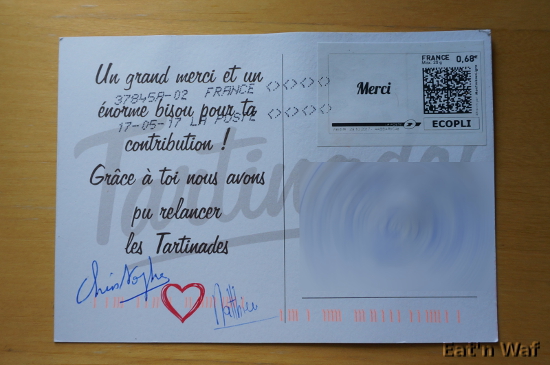 Un grand merci et un
37845A-02 FRANCE
énorme bisou pour ta
17-05-17 LA POSTE
contribution !
Grâce à toi nous avons
pu relancer
les Tartinades
Tartinades
Christophe
Matthieu
Merci
FRANCE
0,68€
ECOPLI
Eat'n Waf